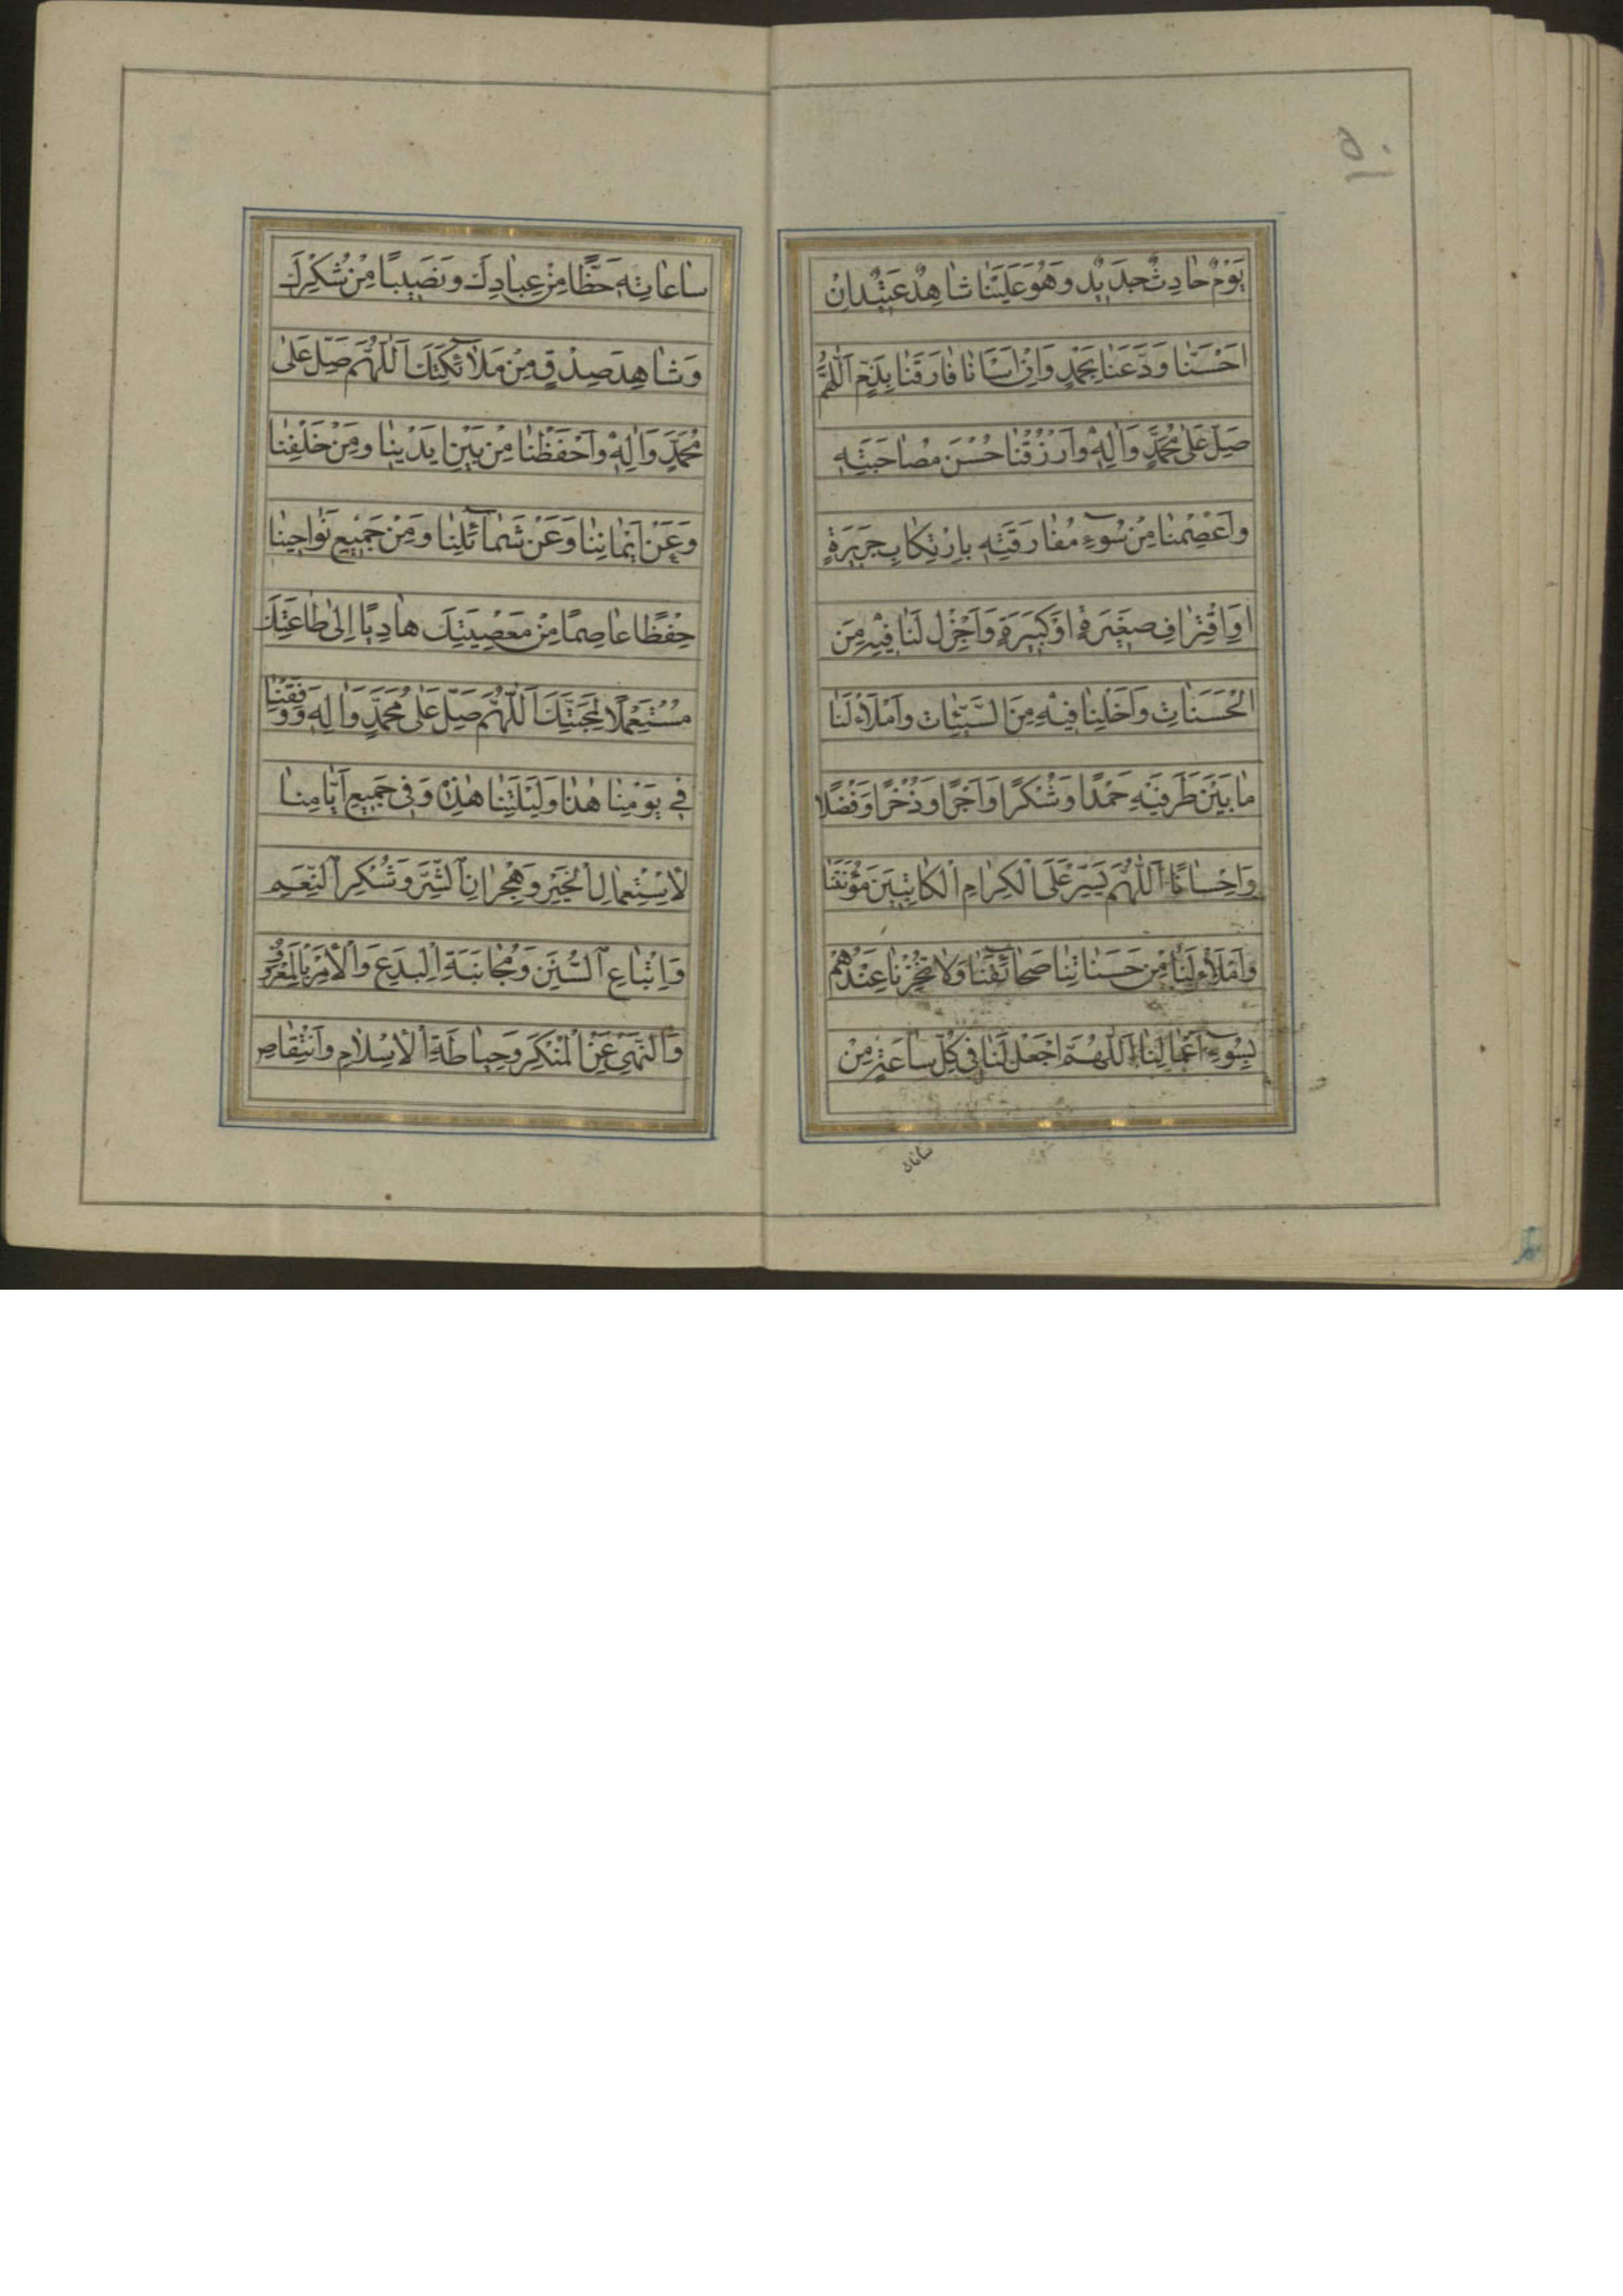 ٥٠
يَوْمٌ حَادِثٌ جَدِيدٌ وَهُوَ عَلَيْنَا شَاهِدٌ عَتِيدٌ اِنْ
اَحْسَنَّا وَدَّعَنَا بِحَمْدٍ وَاِنْ اَسَاْنَا فَارَقَنَا بِذَمٍّ اَللّٰهُمَّ
صَلِّ عَلٰى مُحَمَّدٍ وَاٰلِهٖ وَارْزُقْنَا حُسْنَ مُصَاحَبَتِهٖ
وَاعْصِمْنَا مِنْ سُوۤءِ مُفَارَقَتِهٖ بِارْتِكَابِ جَرِيرَةٍ
اَوِ اقْتِرَافِ صَغِيرَةٍ اَوْ كَبِيرَةٍ وَاَجْزِلْ لَنَا فِيْهِ مِنَ
الْحَسَنَاتِ وَاَخْلِنَا فِيْهِ مِنَ السَّيِّئَاتِ وَامْلَاْ لَنَا
مَا بَيْنَ طَرَفَيْهِ حَمْدًا وَشُكْرًا وَاَجْرًا وَذُخْرًا وَفَضْلًا
وَاِحْسَانًا اَللّٰهُمَّ يَسِّرْ عَلَى الْكِرَامِ الْكَاتِبِينَ مَؤُنَتَنَا
وَامْلَاْ لَنَا مِنْ حَسَنَاتِنَا صَحَاۤئِفَنَا وَلَا تُخْزِنَا عِنْدَهُمْ
بِسُوۤءِ اَعْمَالِنَا اَللّٰهُمَّ اجْعَلْ لَنَا فِى كُلِّ سَاعَةٍ مِنْ
ساعاته
سَاعَاتِهٖ حَظًّا مِنْ عِبَادِكَ وَنَصِيبًا مِنْ شُكْرِكَ
وَشَاهِدَ صِدْقٍ مِنْ مَلَاۤئِكَتِكَ اَللّٰهُمَّ صَلِّ عَلٰى
مُحَمَّدٍ وَاٰلِهٖ وَاحْفَظْنَا مِنْ بَيْنِ اَيْدِينَا وَمِنْ خَلْفِنَا
وَعَنْ اَيْمَانِنَا وَعَنْ شَمَاۤئِلِنَا وَمِنْ جَمِيعِ نَوَاحِينَا
حِفْظًا عَاصِمًا مِنْ مَعْصِيَتِكَ هَادِيًا اِلٰى طَاعَتِكَ
مُسْتَعْمِلًا لِمَحَبَّتِكَ اَللّٰهُمَّ صَلِّ عَلٰى مُحَمَّدٍ وَاٰلِهٖ وَوَفِّقْنَا
فِى يَوْمِنَا هٰذَا وَلَيْلَتِنَا هٰذِهٖ وَفِى جَمِيعِ اَيَّامِنَا
لِاسْتِعْمَالِ الْخَيْرِ وَهِجْرَانِ الشَّرِّ وَشُكْرِ النِّعَمِ
وَاتِّبَاعِ السُّنَنِ وَمُجَانَبَةِ الْبِدَعِ وَالْاَمْرِ بِالْمَعْرُوفِ
وَالنَّهْىِ عَنِ الْمُنْكَرِ وَحِيَاطَةِ الْاِسْلَامِ وَانْتِقَاصِ